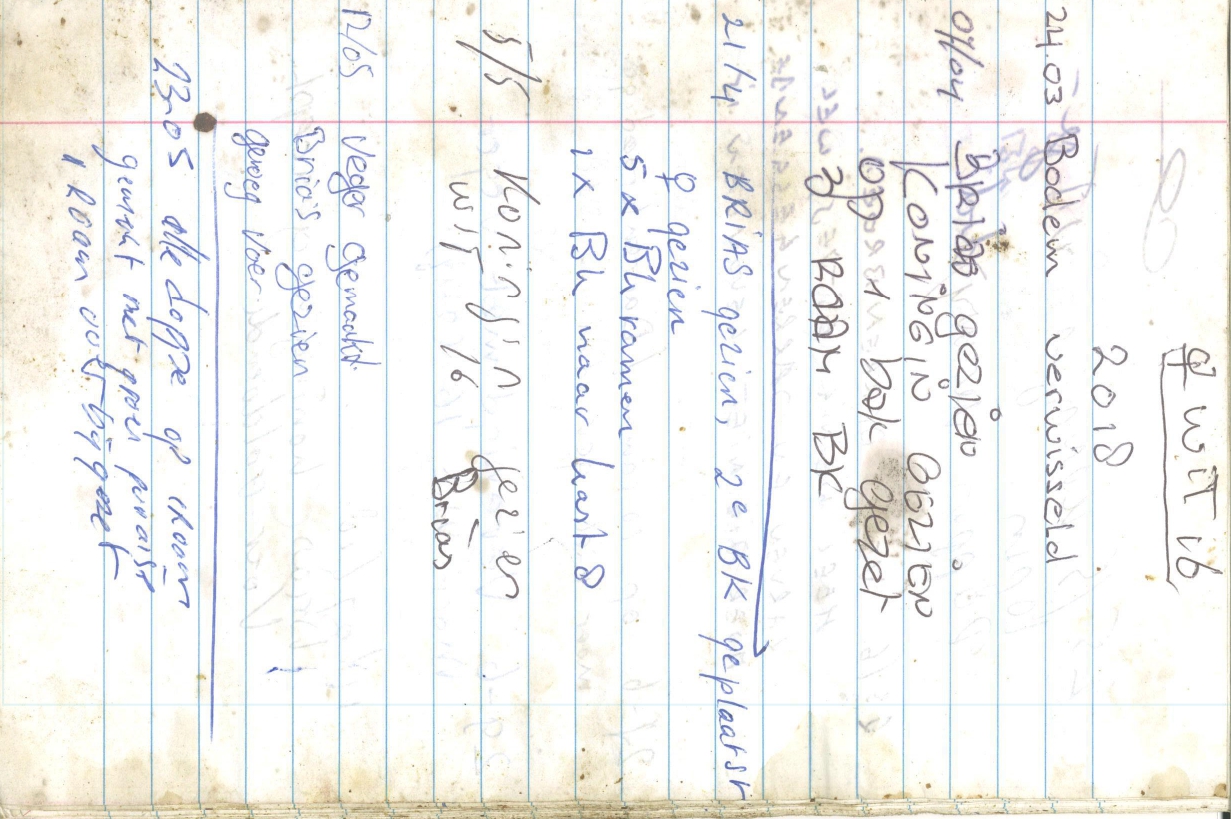 ♀ WIT 16
2018
24.03 Bodem verwisseld
07/04 BRIAS gezien
KONINGIN GEZIEN
opzet bak gezet
3 RAAM BK
21/4 BRIAS gezien, 2e BK geplaatst
♀ gezien
5 x Bk ramen
1 x Bk naar kast 8
5/5 Koningin gezien
wit 16 Brias
12/05 Veger gemaakt
Brias gezien
genoeg voer
23-05 alle doppe op 1 raam
gemerkt met groen punaise
1 Raam